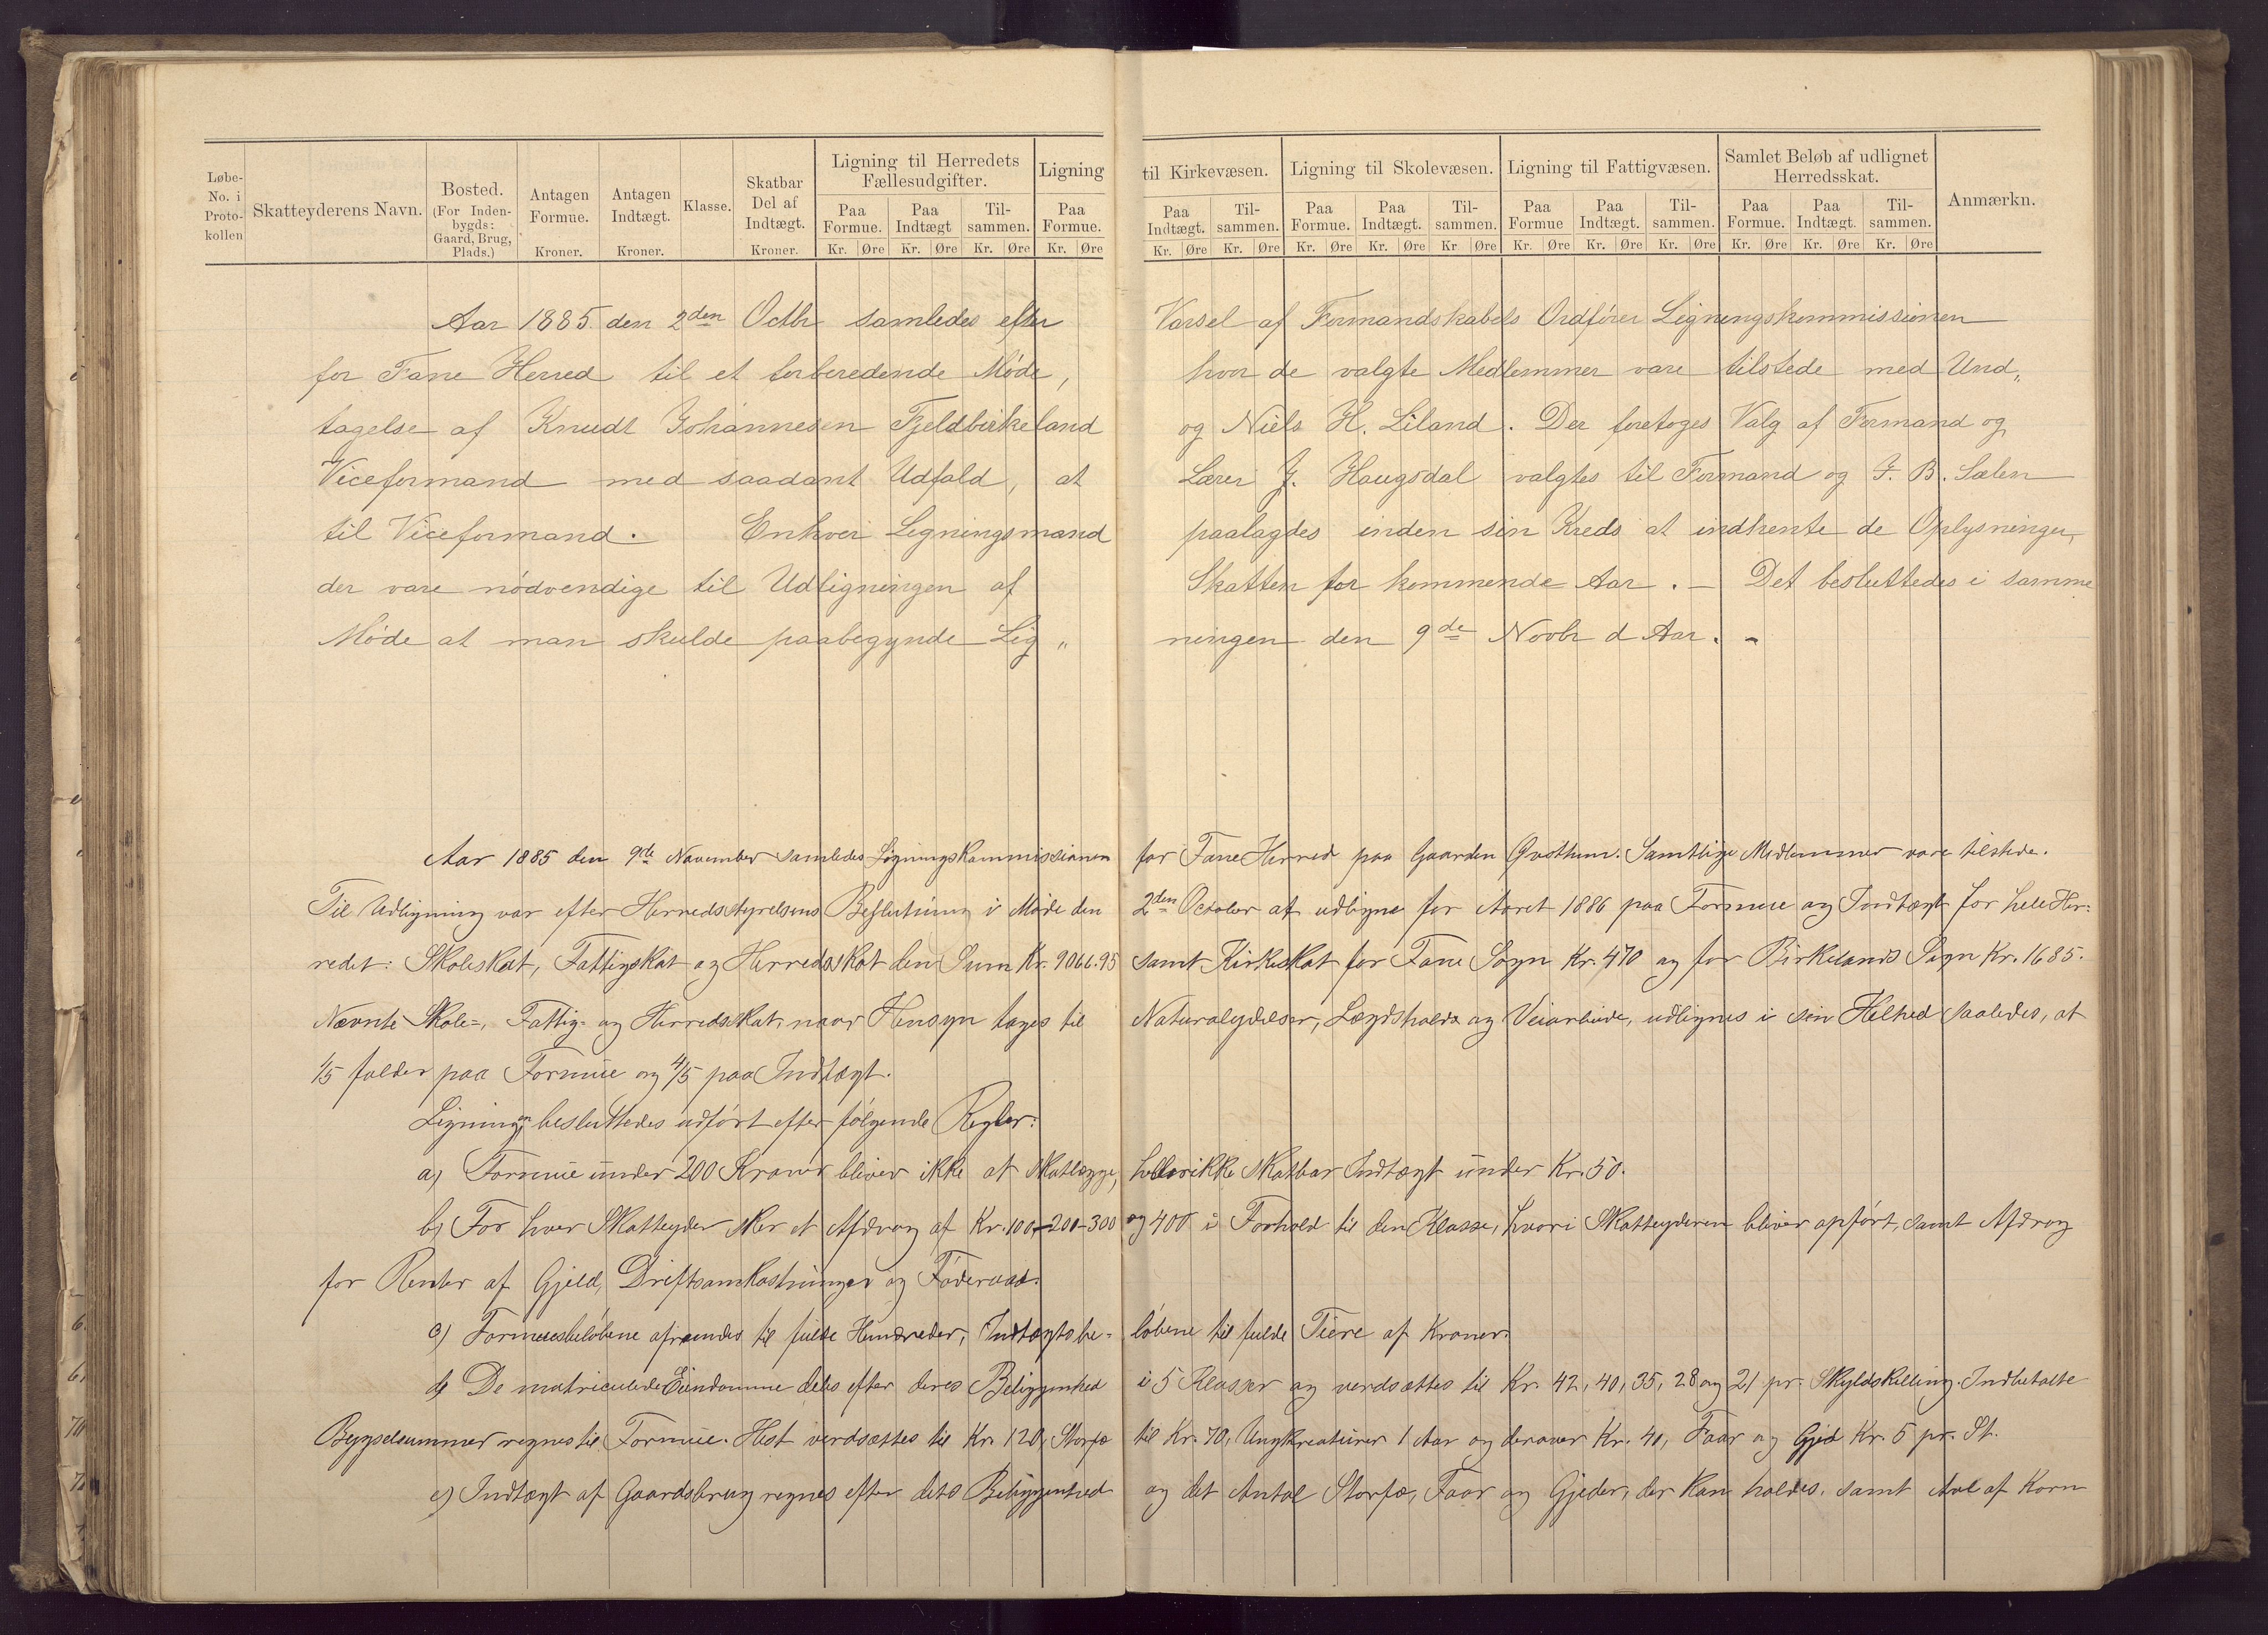 Løbe-No. i Proto-kollen
Skatteyderens Navn.
Bosted. (For Inden-bygds: Gaard, Brug, Plads.)
Antagen Formue. Kroner.
Antagen Indtægt. Kroner.
Klasse.
Skatbar Del af Indtægt. Kroner.
Ligning til Herredets Fællesudgifter.
Paa Formue. Paa Indtægt Til-sammen.
Kr. Øre Kr. Øre Kr. Øre
Ligning
Paa Formue.
Kr. Øre
til Kirkevæsen.
Paa Indtægt. Til-sammen.
Kr. Øre Kr. Øre
Ligning til Skolevæsen.
Paa Formue. Paa Indtægt. Til-sammen.
Kr. Øre Kr. Øre Kr Øre
Ligning til Fattigvæsen.
Paa Formue Paa Indtægt. Til-sammen.
Kr. Øre Kr. Øre Kr. Øre
Samlet Beløb af udlignet Herredsskat.
Paa Formue. Paa Indtægt. Til-sammen.
Kr. Øre Kr. Øre Kr. Øre
Anmærkn.
Aar 1885 den 2den Octbr samledes efter Varsel af Formandskabets Ordfører Ligningskommissionen
for Fane Herred til et forberedende Møde, hvor de valgte Medlemmer vare tilstede med Und„
tagelse af Knudt Johannesen Fjeldbirkeland og Niels H. Liland. Der foretoges Valg af Formand og
Viceformand med saadant Udfald, at Lærer J. Haugsdal valgtes til Formand og J. B. Sælen
til Viceformand. Enhver Ligningsmand paalagdes inden sin Kreds at indhente de Oplysninger,
der vare nødvendige til Udligningen af Skatten for kommende Aar. — Det besluttedes i samme
Møde at man skulde paabegynde Lig„ ningen den 9de Novbr d Aar. -
Aar 1885 den 9de November samledes Ligningskommissionen for Fane Herred paa Gaarden Samtlige Medlemmer vare tilstede.
Til Udligning var efter Herredsstyrelsens Beslutning i Møde den 2den October at udligne for Aaret 1886 paa Formue og Indtægt for hele Her=
redet: Skoleskat, Fattigskat og Herredsskat den Sum Kr. 9066.95 samt Kirkeskat for Fane Sogn Kr. 470 og for Birkelands Sogn Kr. 1685.
Nævnte Skole=, Fattig= og Herredsskat, naar Hensyn tages til Naturalydelser, Lægdshold og Veiarbeide, udlignes i sin Helhed saaledes, at
1/5 falder paa Formue og 4/5 paa Indtægt.
Ligningen besluttedes udført efter følgende Regler:
a) Formue under 200 Kroner bliver ikke at skatlægge, hellerikke skatbar Indtægt under Kr. 50.
b) For hver Skatteyder sker et Afdrag af Kr. 100-200-300 og 400 i Forhold til den Klasse, hvori Skatteyderen bliver opført, samt Afdrag
for Renter af Gjeld, Driftsomkostninger og Føderaad.
c) Formuesbeløbene afrundes til fulde Hundreder, Indtægtsbe= løbene til fulde Tiere af Kroner.
d) De matriculerede Eiendomme deles efter deres Beliggenhed i 5 Klasser og verdsættes til Kr. 42, 40, 35, 28 og 21 pr. Skyldskilling. Indbetalte
Bygselsummer regnes til Formue. Hest verdsættes til Kr. 120, Storfæ til Kr. 70, Ungkreaturer 1 Aar og derover Kr. 40, Faar og Gjed Kr. 5 pr. St.
e) Indtægt af Gaardsbrug regnes efter dets Beliggenhed og det Antal Storfæ, Faar og Gjeder, der kan holdes, samt Avl af Korn